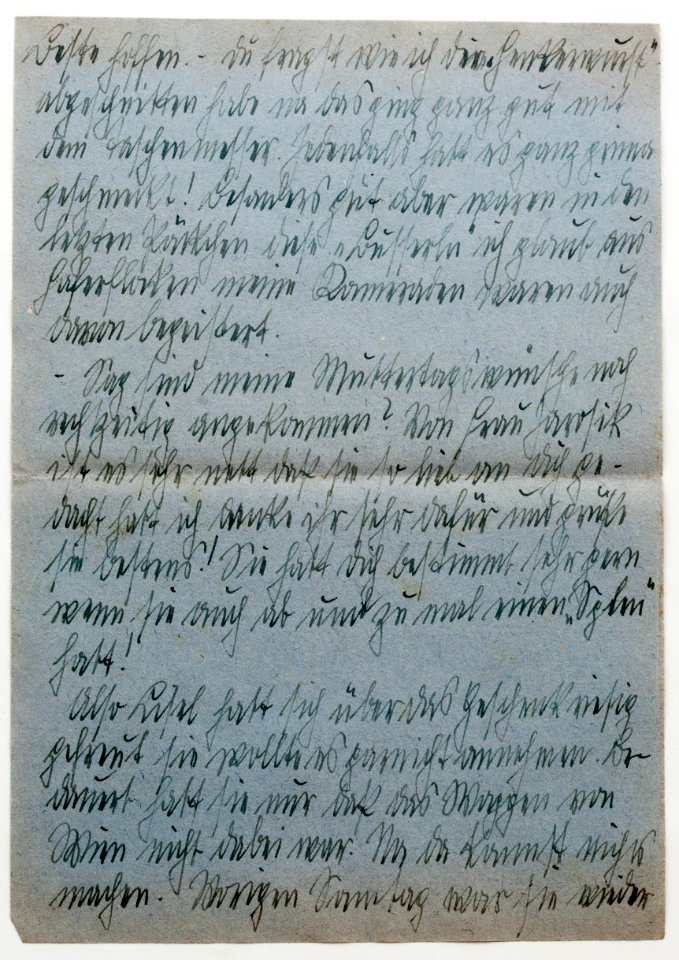 Beste hoffen. - Du frägst wie ich die „Henkerwurst"
abgeschnitten habe na das ging ganz gut mit
dem Taschenmesser. Jedenfalls hatt es ganz prima
geschmeckt! Besonders gut aber waren in den
letzten Päckchen diese „Busserln" ich glaub aus
Haferflocken meine Kameraden waren auch
davon begeistert.
- Sag sind meine Muttertagswünsche noch
rechtzeitig angekommen? Von Frau Jarosik
ist es sehr nett daß sie so lieb an Dich ge-
dacht hatt ich danke ihr sehr dafür und grüße
sie bestens! Sie hatt Dich bestimmt sehr gern
wenn sie auch ab und zu mal einen „Splen"
hatt!
Also Lisel hatt sich über das Geschenk riesig
gefreut, sie wollte es garnicht annehmen. Be-
dauert hatt sie nur daß das Wappen von
Wien nicht dabei war. Na da kannst nichts
machen. Vorigen Samstag war sie wieder